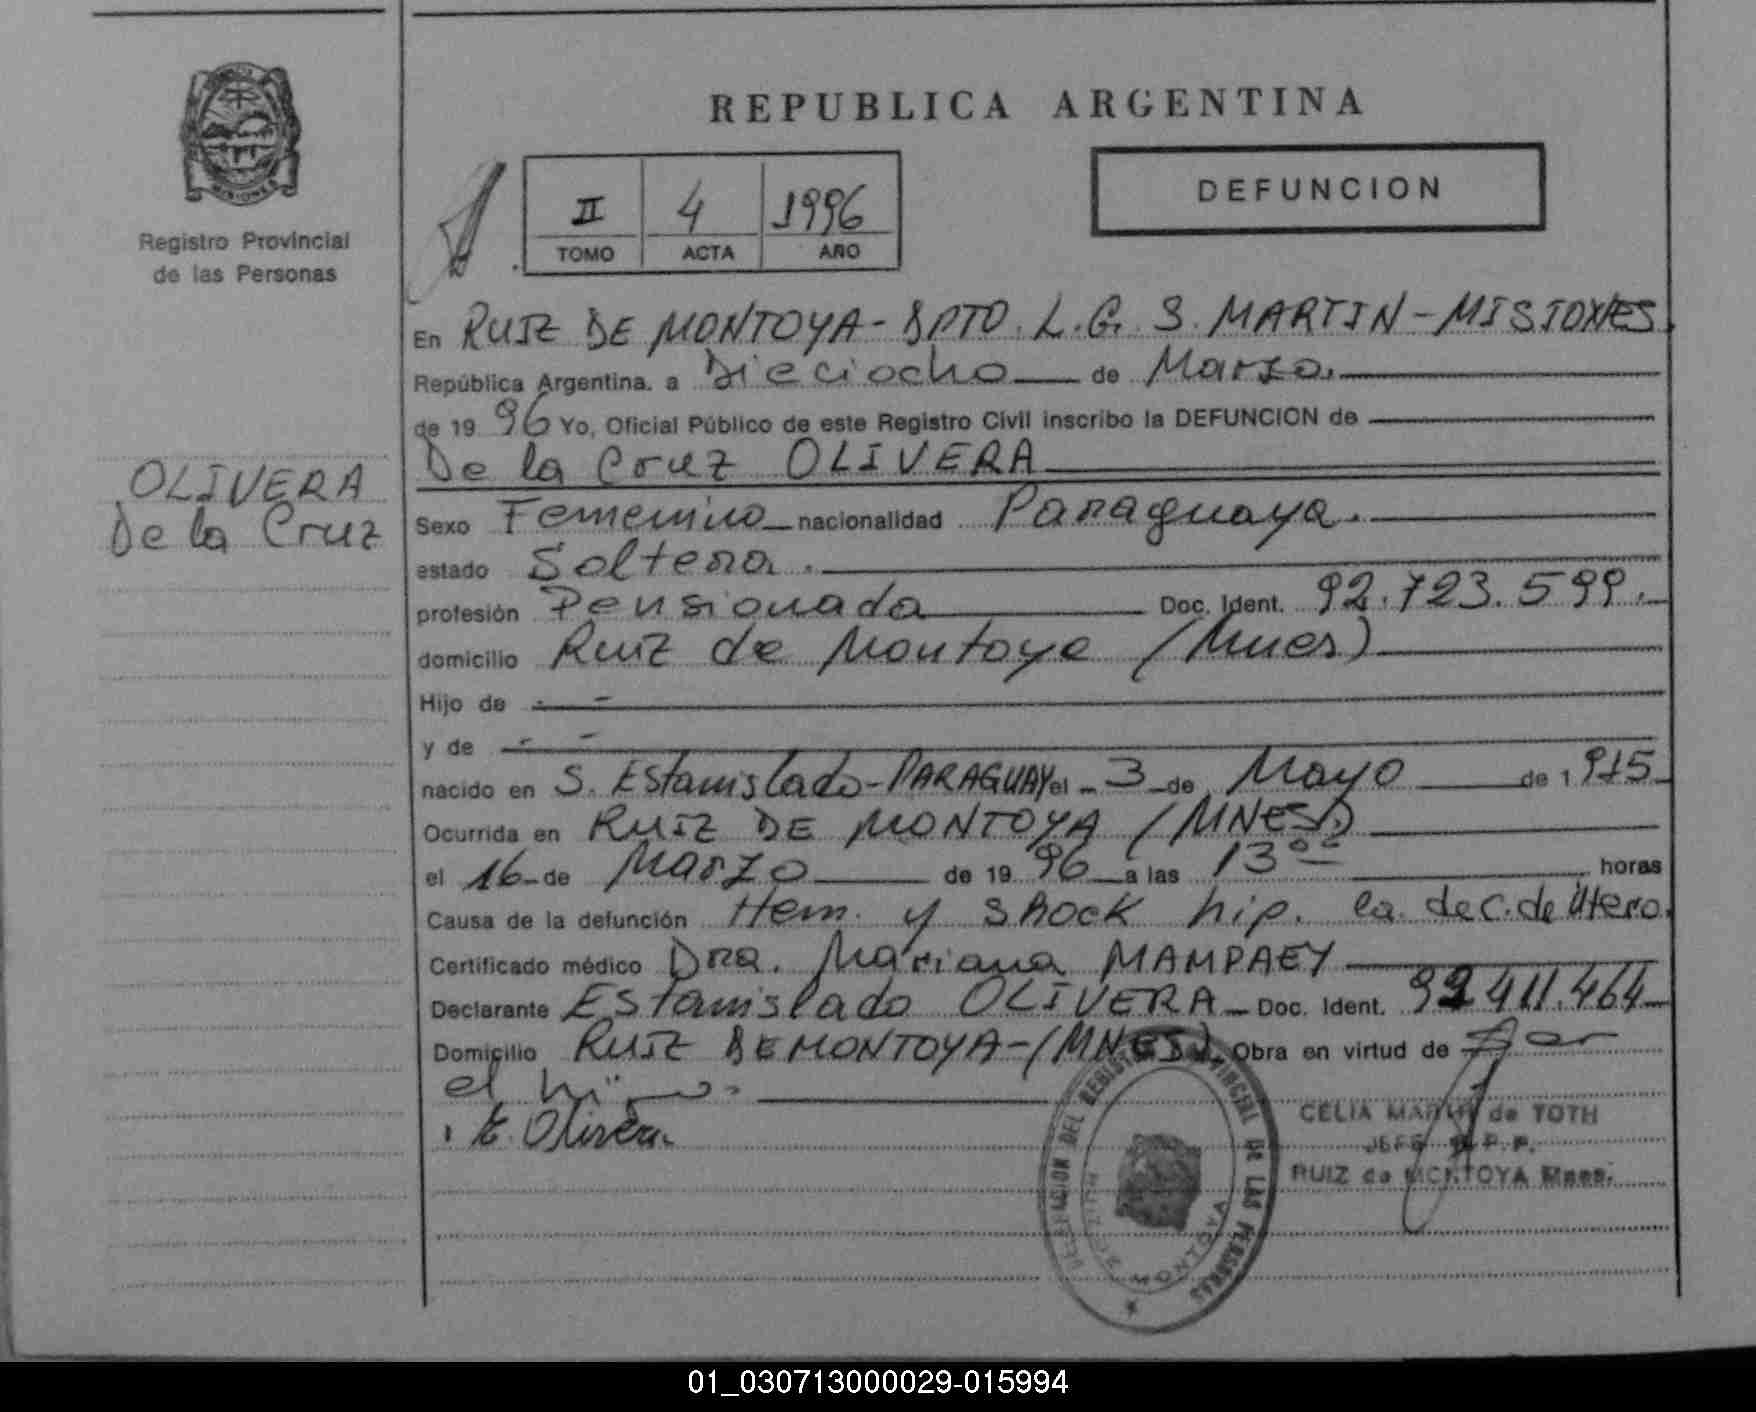 REPUBLICA ARGENTINA
MISIONES
Registro Provincial
de las Personas
II 4 1996
TOMO ACTA AÑO
DEFUNCION
OLIVERA
De la Cruz
En RUIZ DE MONTOYA - DPTO. L.G. S. MARTIN - MISIONES.
República Argentina. a Dieciocho de Marzo.
de 19 96 Yo, Oficial Público de este Registro Civil inscribo la DEFUNCION de
De la Cruz OLIVERA
Sexo Femenino nacionalidad Paraguaya.
estado Soltera.
profesión Pensionada Doc. Ident. 92.723.599.
domicilio Ruiz de Montoya (Mnes)
Hijo de - -
y de - -
nacido en S. Estanislado - PARAGUAY el 3 de Mayo de 1 915
Ocurrida en RUIZ DE MONTOYA (MNES.)
el 16 de Marzo de 19 96 a las 13 oo horas
Causa de la defunción Hem. y Shock hip. ca. dec. de útero.
Certificado médico Dra. Mariana MAMPAEY
Declarante Estanislado OLIVERA Doc. Ident. 92.411.464
Domicilio RUIZ DE MONTOYA - (MNES). Obra en virtud de Ser
el
E. Olivera
DELEGACION DEL REGISTRO PROVINCIAL DE LAS PERSONAS
RUIZ DE MONTOYA
CELIA MARIA de TOTH
JEFE R.P.P.
RUIZ de MONTOYA Mnes.
01_030713000029-015994